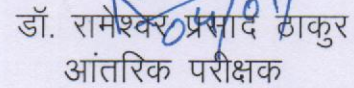 डॉ. रामेश्वर प्रसाद ठाकुर
आंतरिक परीक्षक